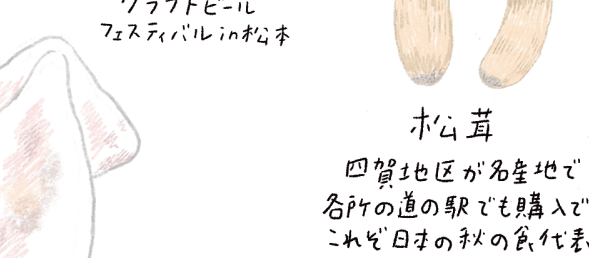 クラフトビール
フェスティバルin松本
松茸
四賀地区が名産地で
各所の道の駅でも購入で
これぞ日本の秋の食代表